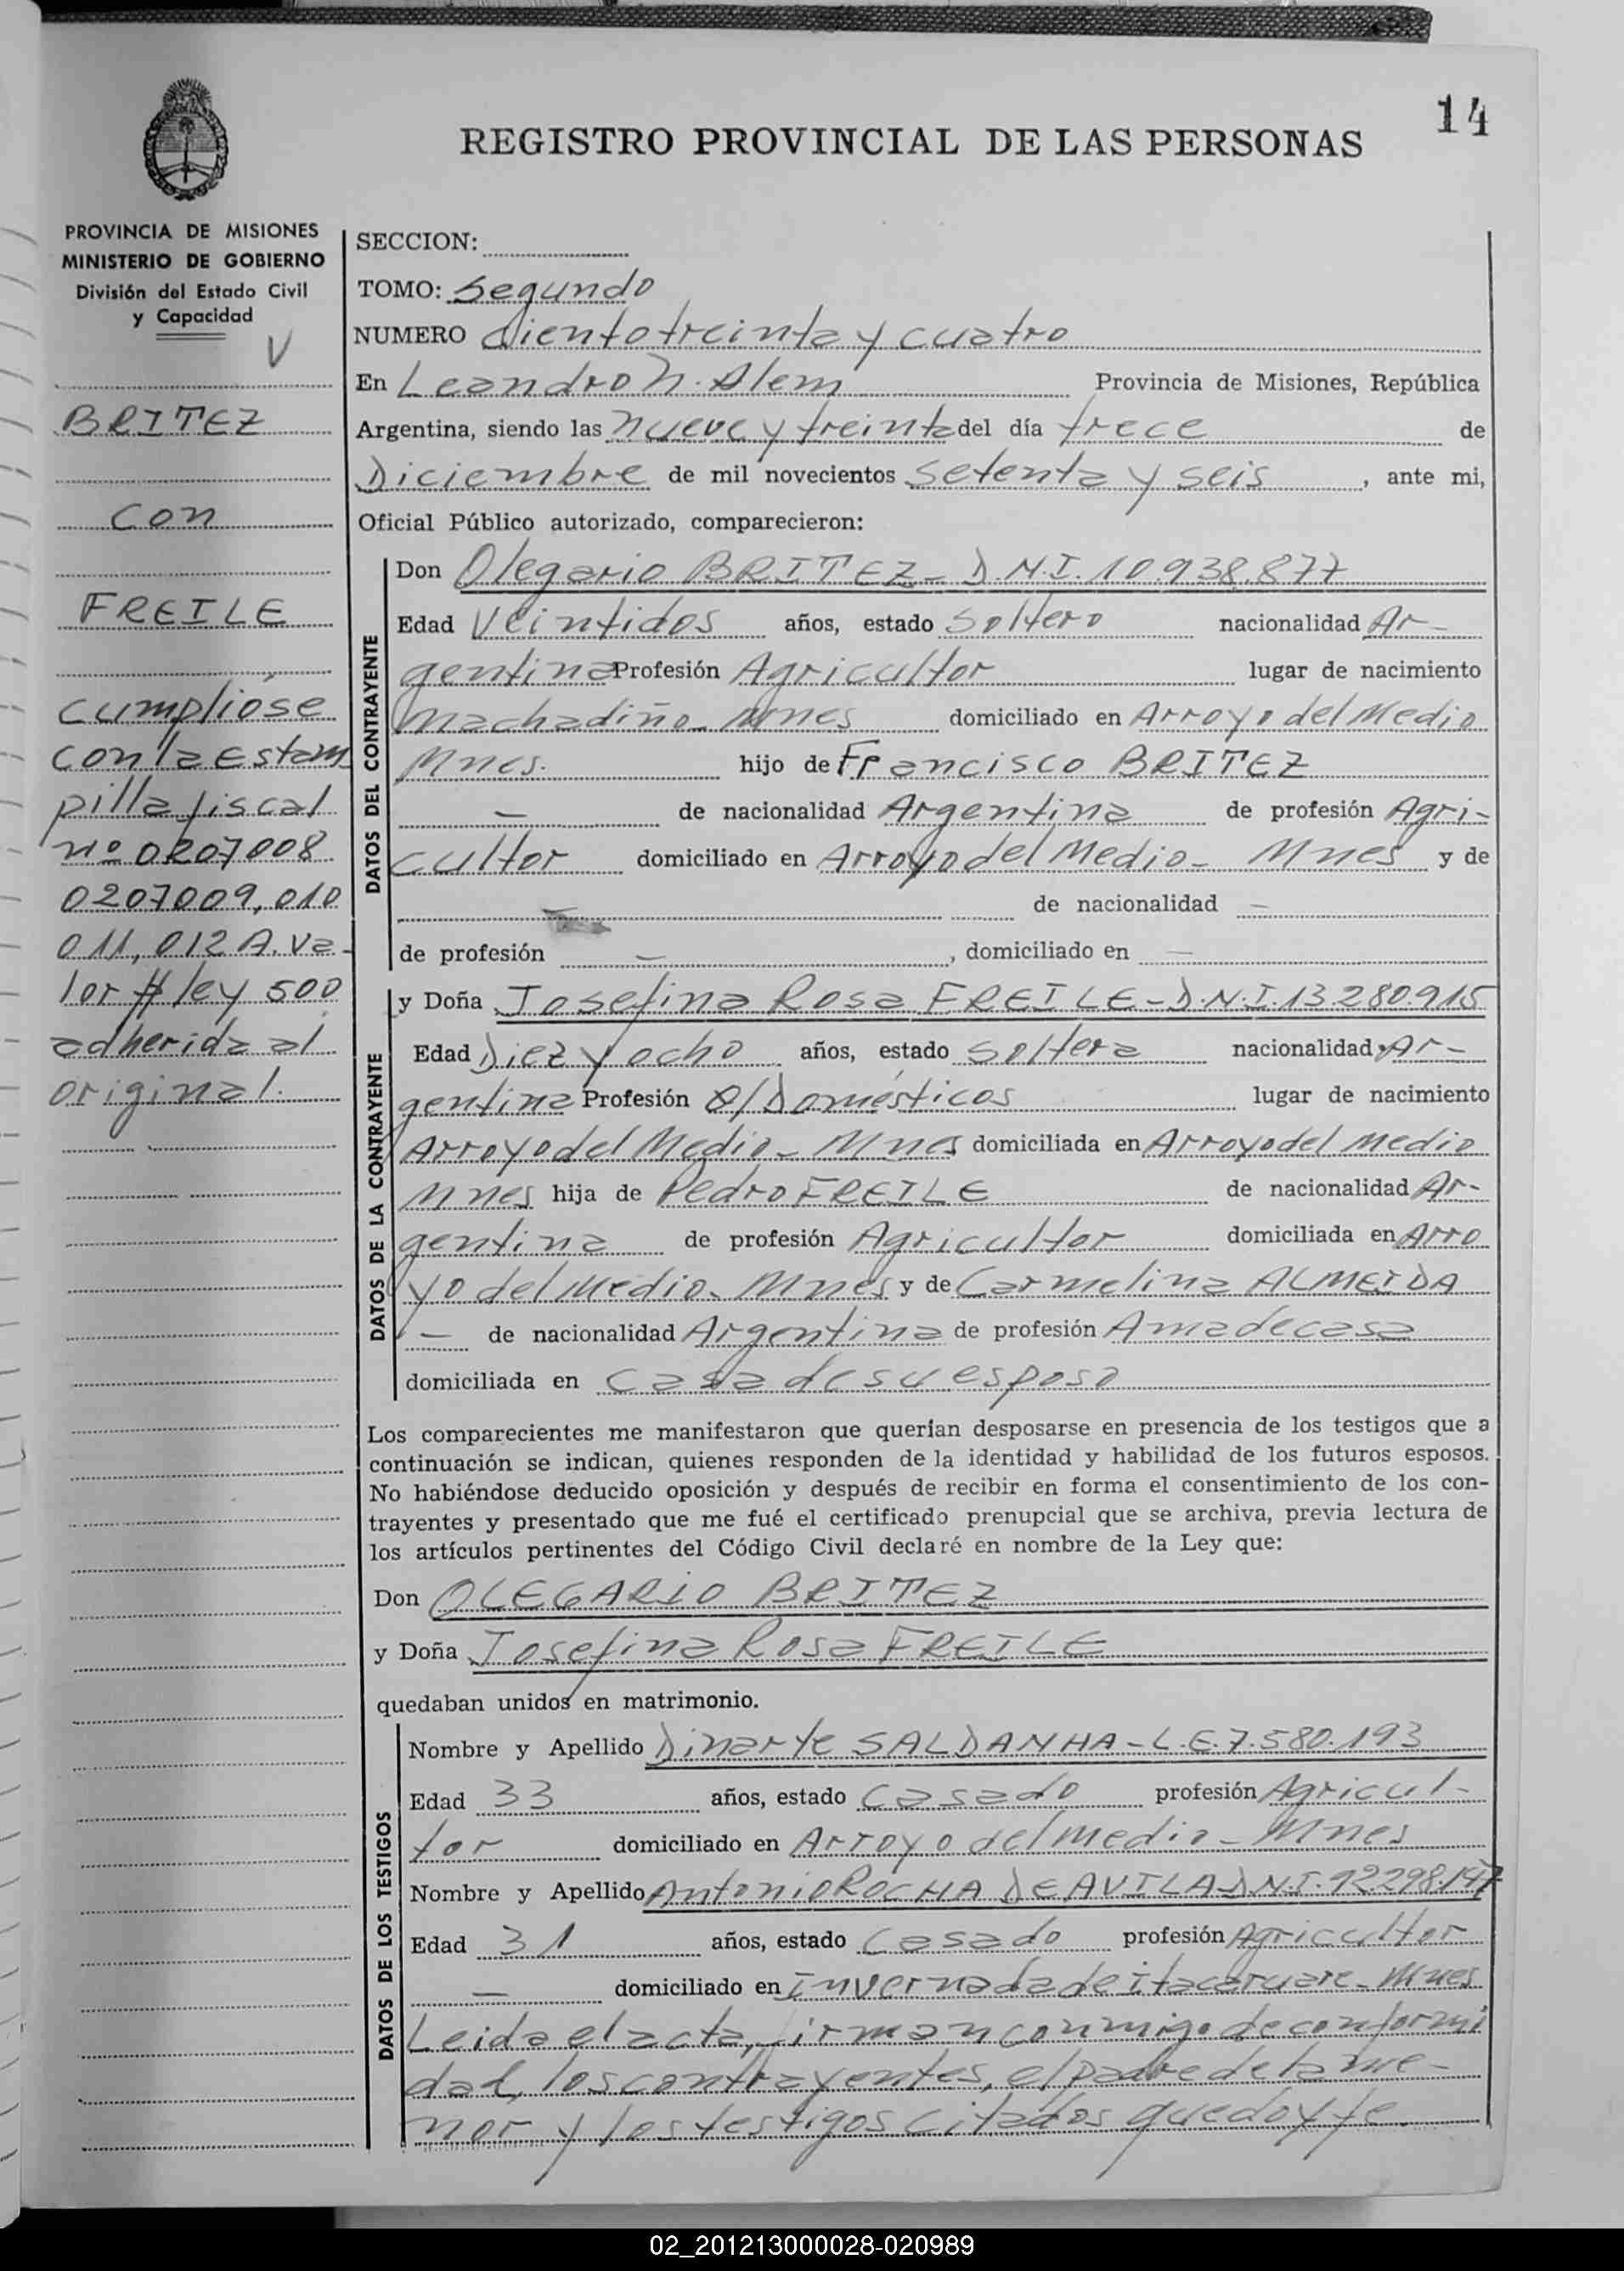 14
REGISTRO PROVINCIAL DE LAS PERSONAS
PROVINCIA DE MISIONES
MINISTERIO DE GOBIERNO
División del Estado Civil
y Capacidad
V
BRITEZ
con
FREILE
cumplióse
con la Estam
pilla fiscal
nº 0207008
0207009, 010
011, 012 A. va-
lor $ ley 500
adherida al
original.
SECCION:
TOMO: Segundo
NUMERO Ciento treinta y cuatro
En Leandro N. Alem Provincia de Misiones, República
Argentina, siendo las nueve y treinta del día trece de
Diciembre de mil novecientos setenta y seis, ante mi,
Oficial Público autorizado, comparecieron:
DATOS DEL CONTRAYENTE
Don Olegario BRITEZ - D.N.I. 10.938.877
Edad Veintidos años, estado Soltero nacionalidad Ar-
gentina Profesión Agricultor lugar de nacimiento
Machadiño - Mnes domiciliado en Arroyo del Medio
Mnes. hijo de Francisco BRITEZ
— de nacionalidad Argentina de profesión Agri-
cultor domiciliado en Arroyo del Medio - Mnes y de
de nacionalidad —
de profesión —, domiciliado en —
DATOS DE LA CONTRAYENTE
y Doña Josefina Rosa FREILE - D.N.I. 13.280.915
Edad Diez y ocho años, estado Soltera nacionalidad Ar-
gentina Profesión Q/Domésticos lugar de nacimiento
Arroyo del Medio - Mnes domiciliada en Arroyo del Medio
Mnes hija de Pedro FREILE de nacionalidad Ar-
gentina de profesión Agricultor domiciliada en Arro
yo del Medio - Mnes y de Carmelina ALMEIDA
— de nacionalidad Argentina de profesión Ama de casa
domiciliada en casa de su esposo
Los comparecientes me manifestaron que querían desposarse en presencia de los testigos que a
continuación se indican, quienes responden de la identidad y habilidad de los futuros esposos.
No habiéndose deducido oposición y después de recibir en forma el consentimiento de los con-
trayentes y presentado que me fué el certificado prenupcial que se archiva, previa lectura de
los artículos pertinentes del Código Civil declaré en nombre de la Ley que:
Don OLEGARIO BRITEZ
y Doña Josefina Rosa FREILE
quedaban unidos en matrimonio.
DATOS DE LOS TESTIGOS
Nombre y Apellido Dinarte SALDANHA - L.E. 7.580.193
Edad 33 años, estado Casado profesión Agricul-
tor domiciliado en Arroyo del Medio - Mnes
Nombre y Apellido Antonio ROCHA DE AVILA D.N.I. 92298.147
Edad 31 años, estado Casado profesión Agricultor
— domiciliado en Invernada de Itacaruare - Mnes
Leida el acta, firman conmigo de conformi
dad, los contrayentes, el padre de la me-
nor y los testigos citados que doy fe.
02_201213000028-020989